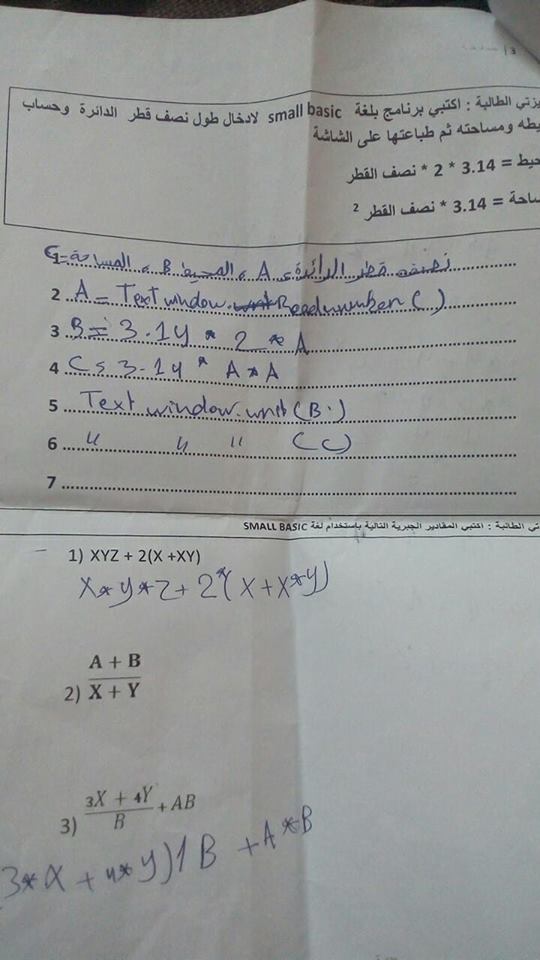 يزتي الطالبة : اكتبي برنامج بلغة small basic لادخال طول نصف قطر الدائرة وحساب
يطه ومساحته ثم طباعتها على الشاشة
حيط = 3.14 * 2 * نصف القطر
ساحة = 3.14 * نصف القطر 2
1 نصف قطر الدائرة A ، المحيط B ، المساحة C=
2 A = Text window. Readnumber ( )
3 B = 3.14 * 2 * A
4 C = 3.14 * A * A
5 Text window. (B.)
6 " " " (C)
7
تي الطالبة : اكتبي المقادير الجبرية التالية باستخدام لغة SMALL BASIC
1) XYZ + 2(X +XY)
X*y*z+ 2*(X+X*y)
A + B
2) X + Y
3X + 4Y
3) B + AB
3*X + 4*y)/B +A*B